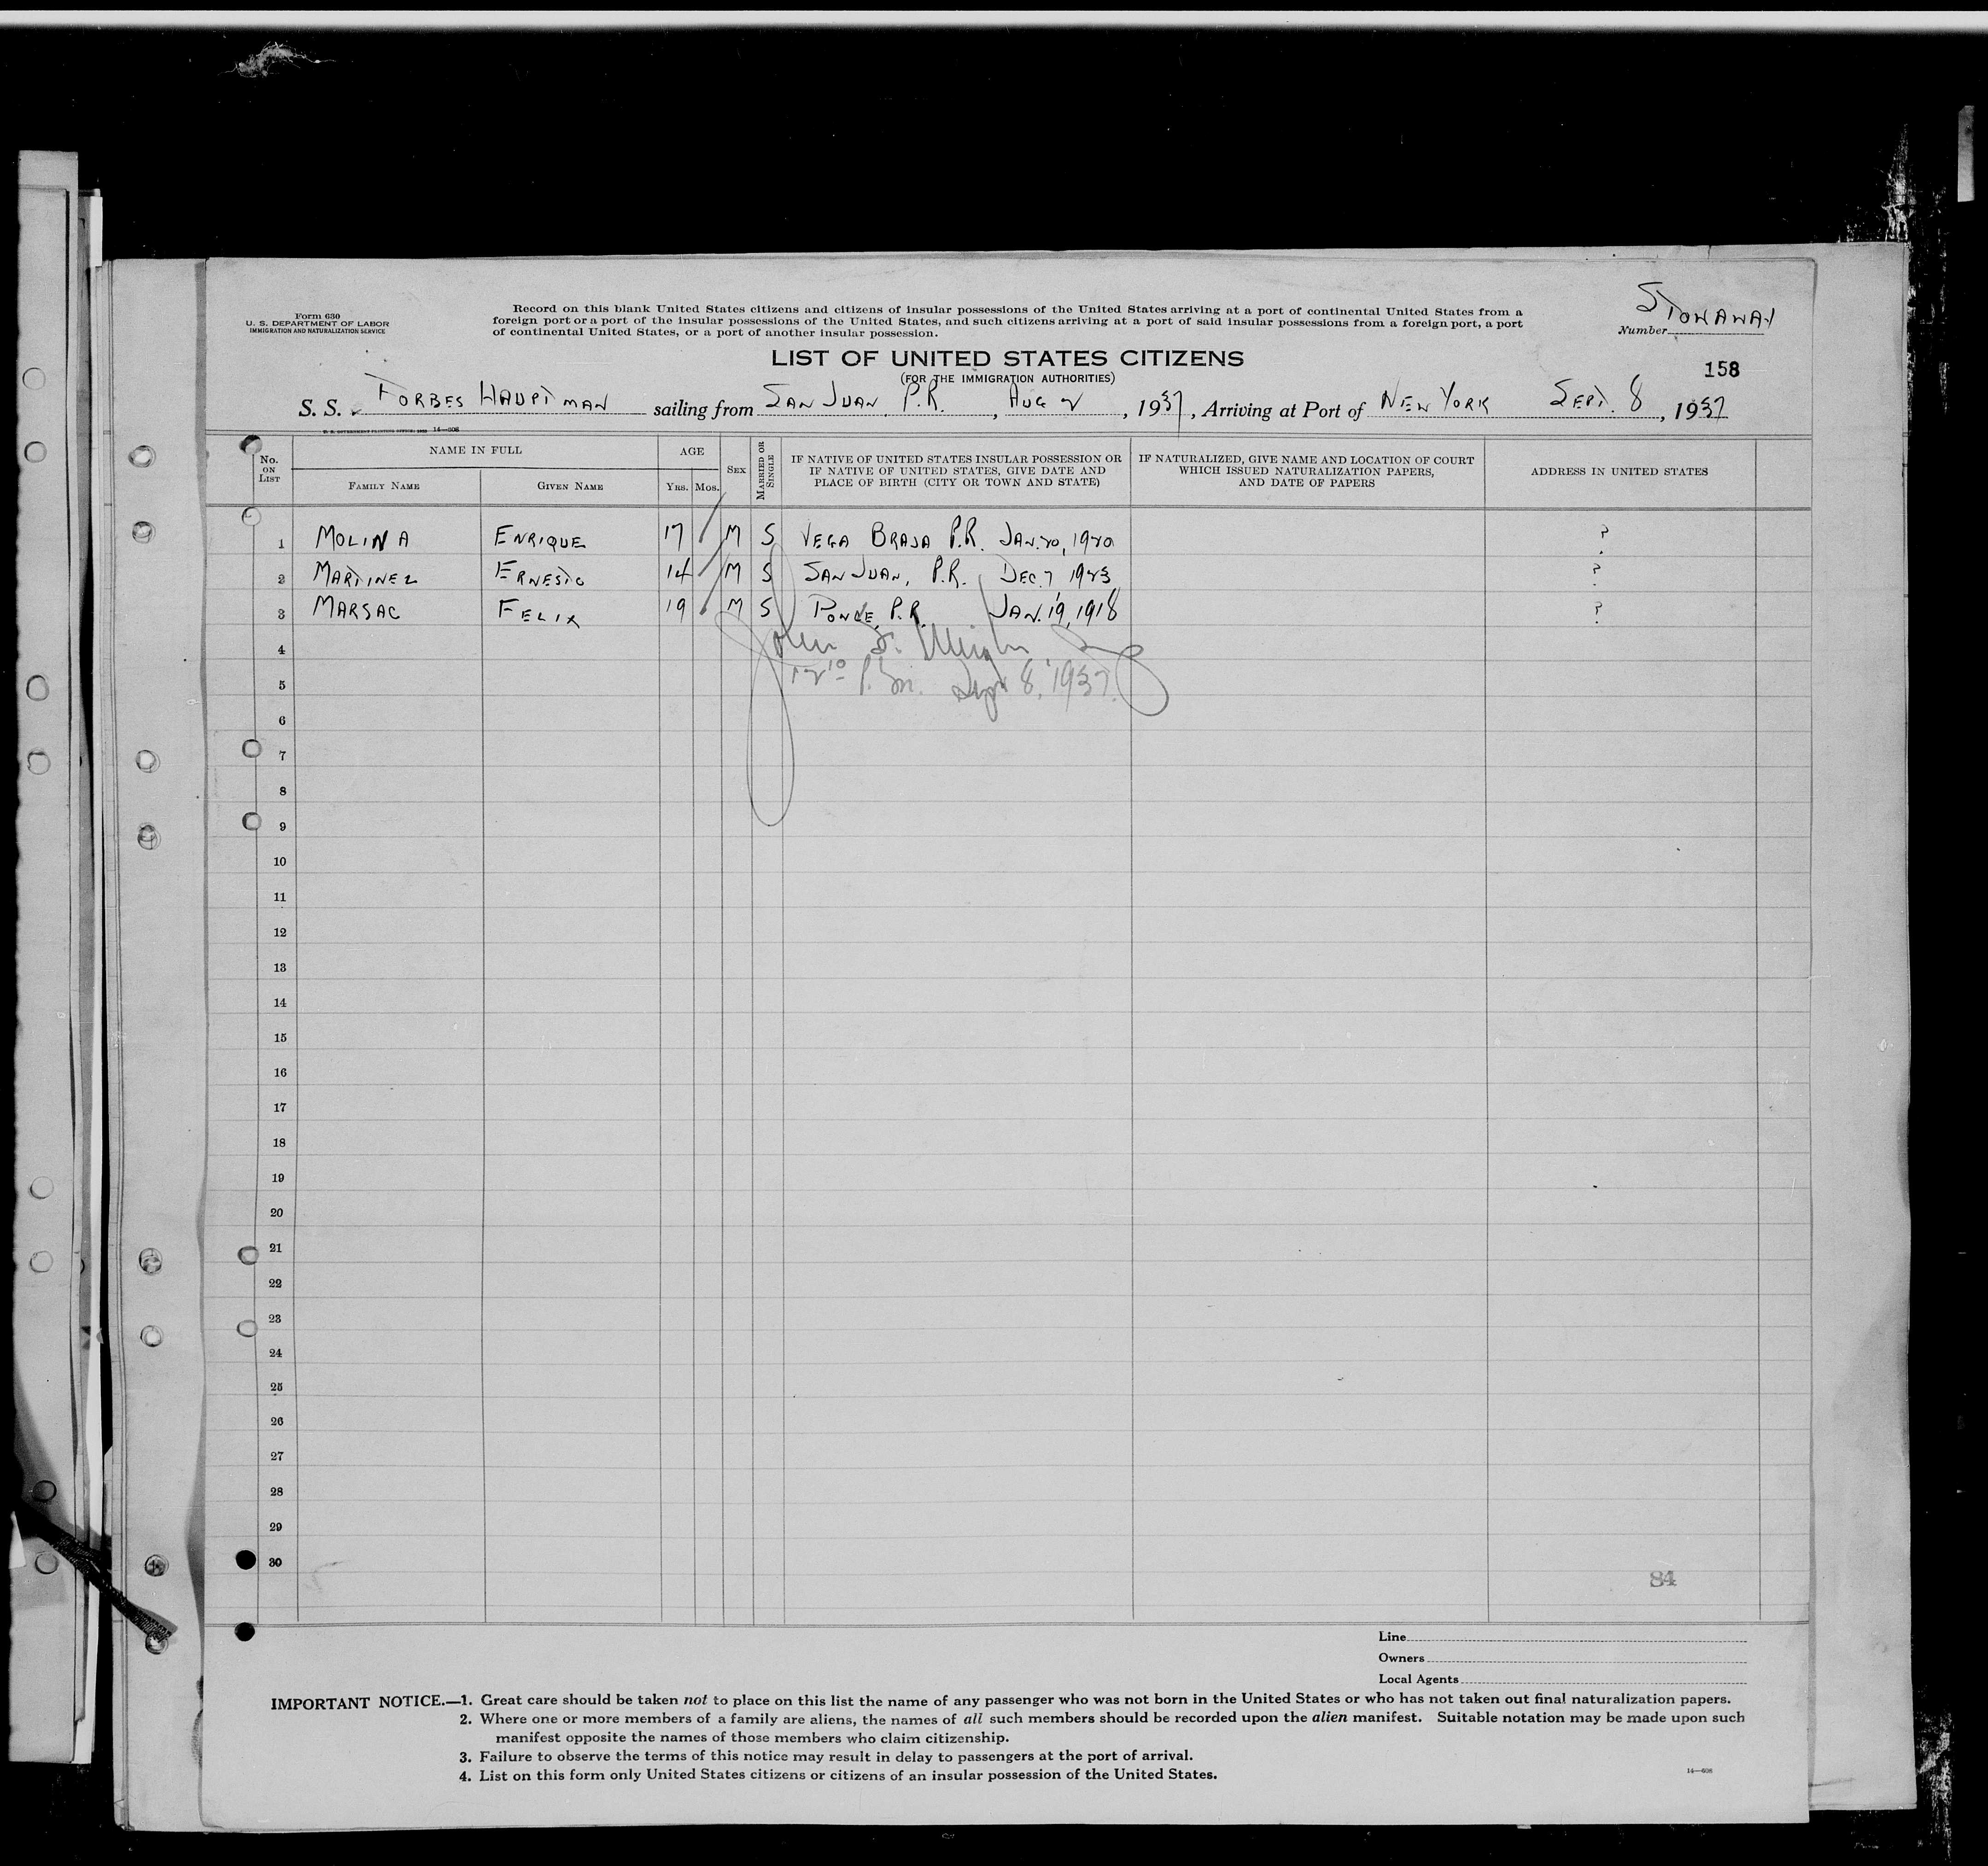 Form 630
U. S. DEPARTMENT OF LABOR
IMMIGRATION AND NATURALIZATION SERVICE
Record on this blank United States citizens and citizens of insular possessions of the United States arriving at a port of continental United States from a
foreign port or a port of the insular possessions of the United States, and such citizens arriving at a port of said insular possessions from a foreign port, a port
of continental United States, or a port of another insular possession.
STOWAWAY
Number
LIST OF UNITED STATES CITIZENS
(FOR THE IMMIGRATION AUTHORITIES)
158
S. S. FORBES HAUPTMAN sailing from SAN JUAN, P.R., AUG 2, 1937, Arriving at Port of NEW YORK SEPT. 8, 1937
14—608
No. ON LIST
NAME IN FULL
FAMILY NAME
GIVEN NAME
AGE
YRS. MOS.
SEX
MARRIED OR SINGLE
IF NATIVE OF UNITED STATES INSULAR POSSESSION OR
IF NATIVE OF UNITED STATES, GIVE DATE AND
PLACE OF BIRTH (CITY OR TOWN AND STATE)
IF NATURALIZED, GIVE NAME AND LOCATION OF COURT
WHICH ISSUED NATURALIZATION PAPERS,
AND DATE OF PAPERS
ADDRESS IN UNITED STATES
1 MOLINA ENRIQUE 17 M S VEGA BRAJA P.R. JAN. 20, 1920 ?
2 MARTINEZ ERNESTO 14 M S SAN JUAN, P.R. DEC. 7 1923 ?
3 MARSAC FELIX 19 M S PONCE, P.R. JAN. 19, 1918 ?
4 John
5 P. m. Sept 8, 1937.
6
7
8
9
10
11
12
13
14
15
16
17
18
19
20
21
22
23
24
25
26
27
28
29
30
84
Line
Owners
Local Agents
IMPORTANT NOTICE.—1. Great care should be taken not to place on this list the name of any passenger who was not born in the United States or who has not taken out final naturalization papers.
2. Where one or more members of a family are aliens, the names of all such members should be recorded upon the alien manifest. Suitable notation may be made upon such
manifest opposite the names of those members who claim citizenship.
3. Failure to observe the terms of this notice may result in delay to passengers at the port of arrival.
4. List on this form only United States citizens or citizens of an insular possession of the United States.
14—608